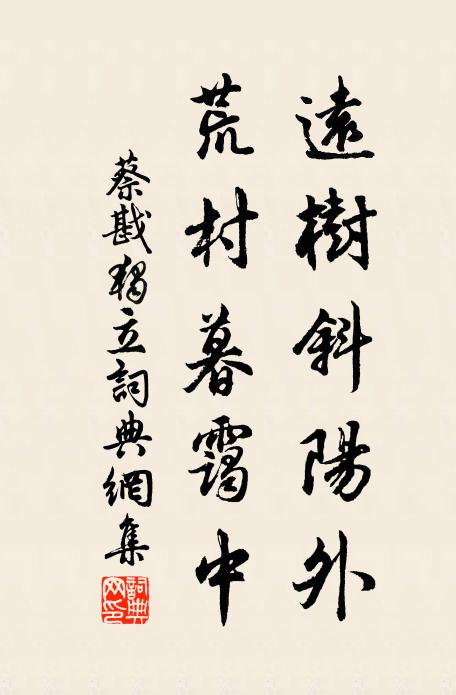 遠樹斜陽外
荒村暮靄中
蔡戡獨立詞典網集
詞典網印